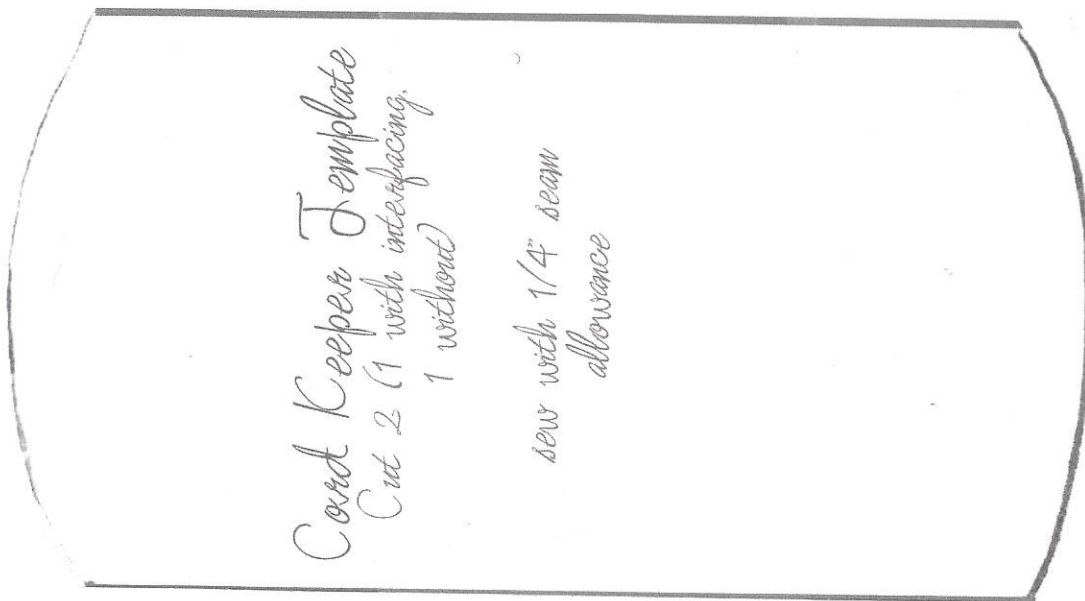 Cord Keeper Template
Cut 2 (1 with interfacing,
1 without)
sew with 1/4" seam
allowance